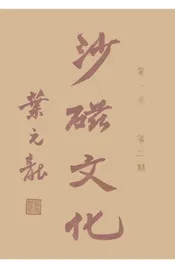 沙磁文化
第一卷 第二期
葉元龍